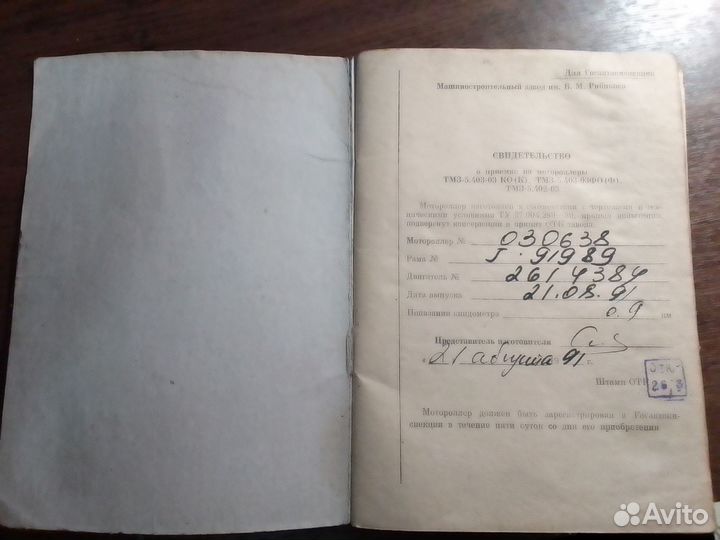 Для Госавтоинспекции
Машиностроительный завод им. В. М. Рябикова
СВИДЕТЕЛЬСТВО
о приемке на мотороллеры
ТМЗ-5.403-03 КО(К), ТМЗ-5.403-03ФО(Ф),
ТМЗ-5.402-03
Мотороллер изготовлен в соответствии с чертежами и тех-
ническими условиями ТУ 37.004.280
подвергнут консервации и принят ОТК завода.
Мотороллер № 030638
Рама № I-91989
Двигатель № 2614384
Дата выпуска 21.08.91
Показания спидометра 0.9 км
Представитель изготовителя
21 августа 91 г.
ОТК
26
Штамп ОТК
Мотороллер должен быть зарегистрирован в Госавтоин-
спекции в течение пяти суток со дня его приобретения
Avito